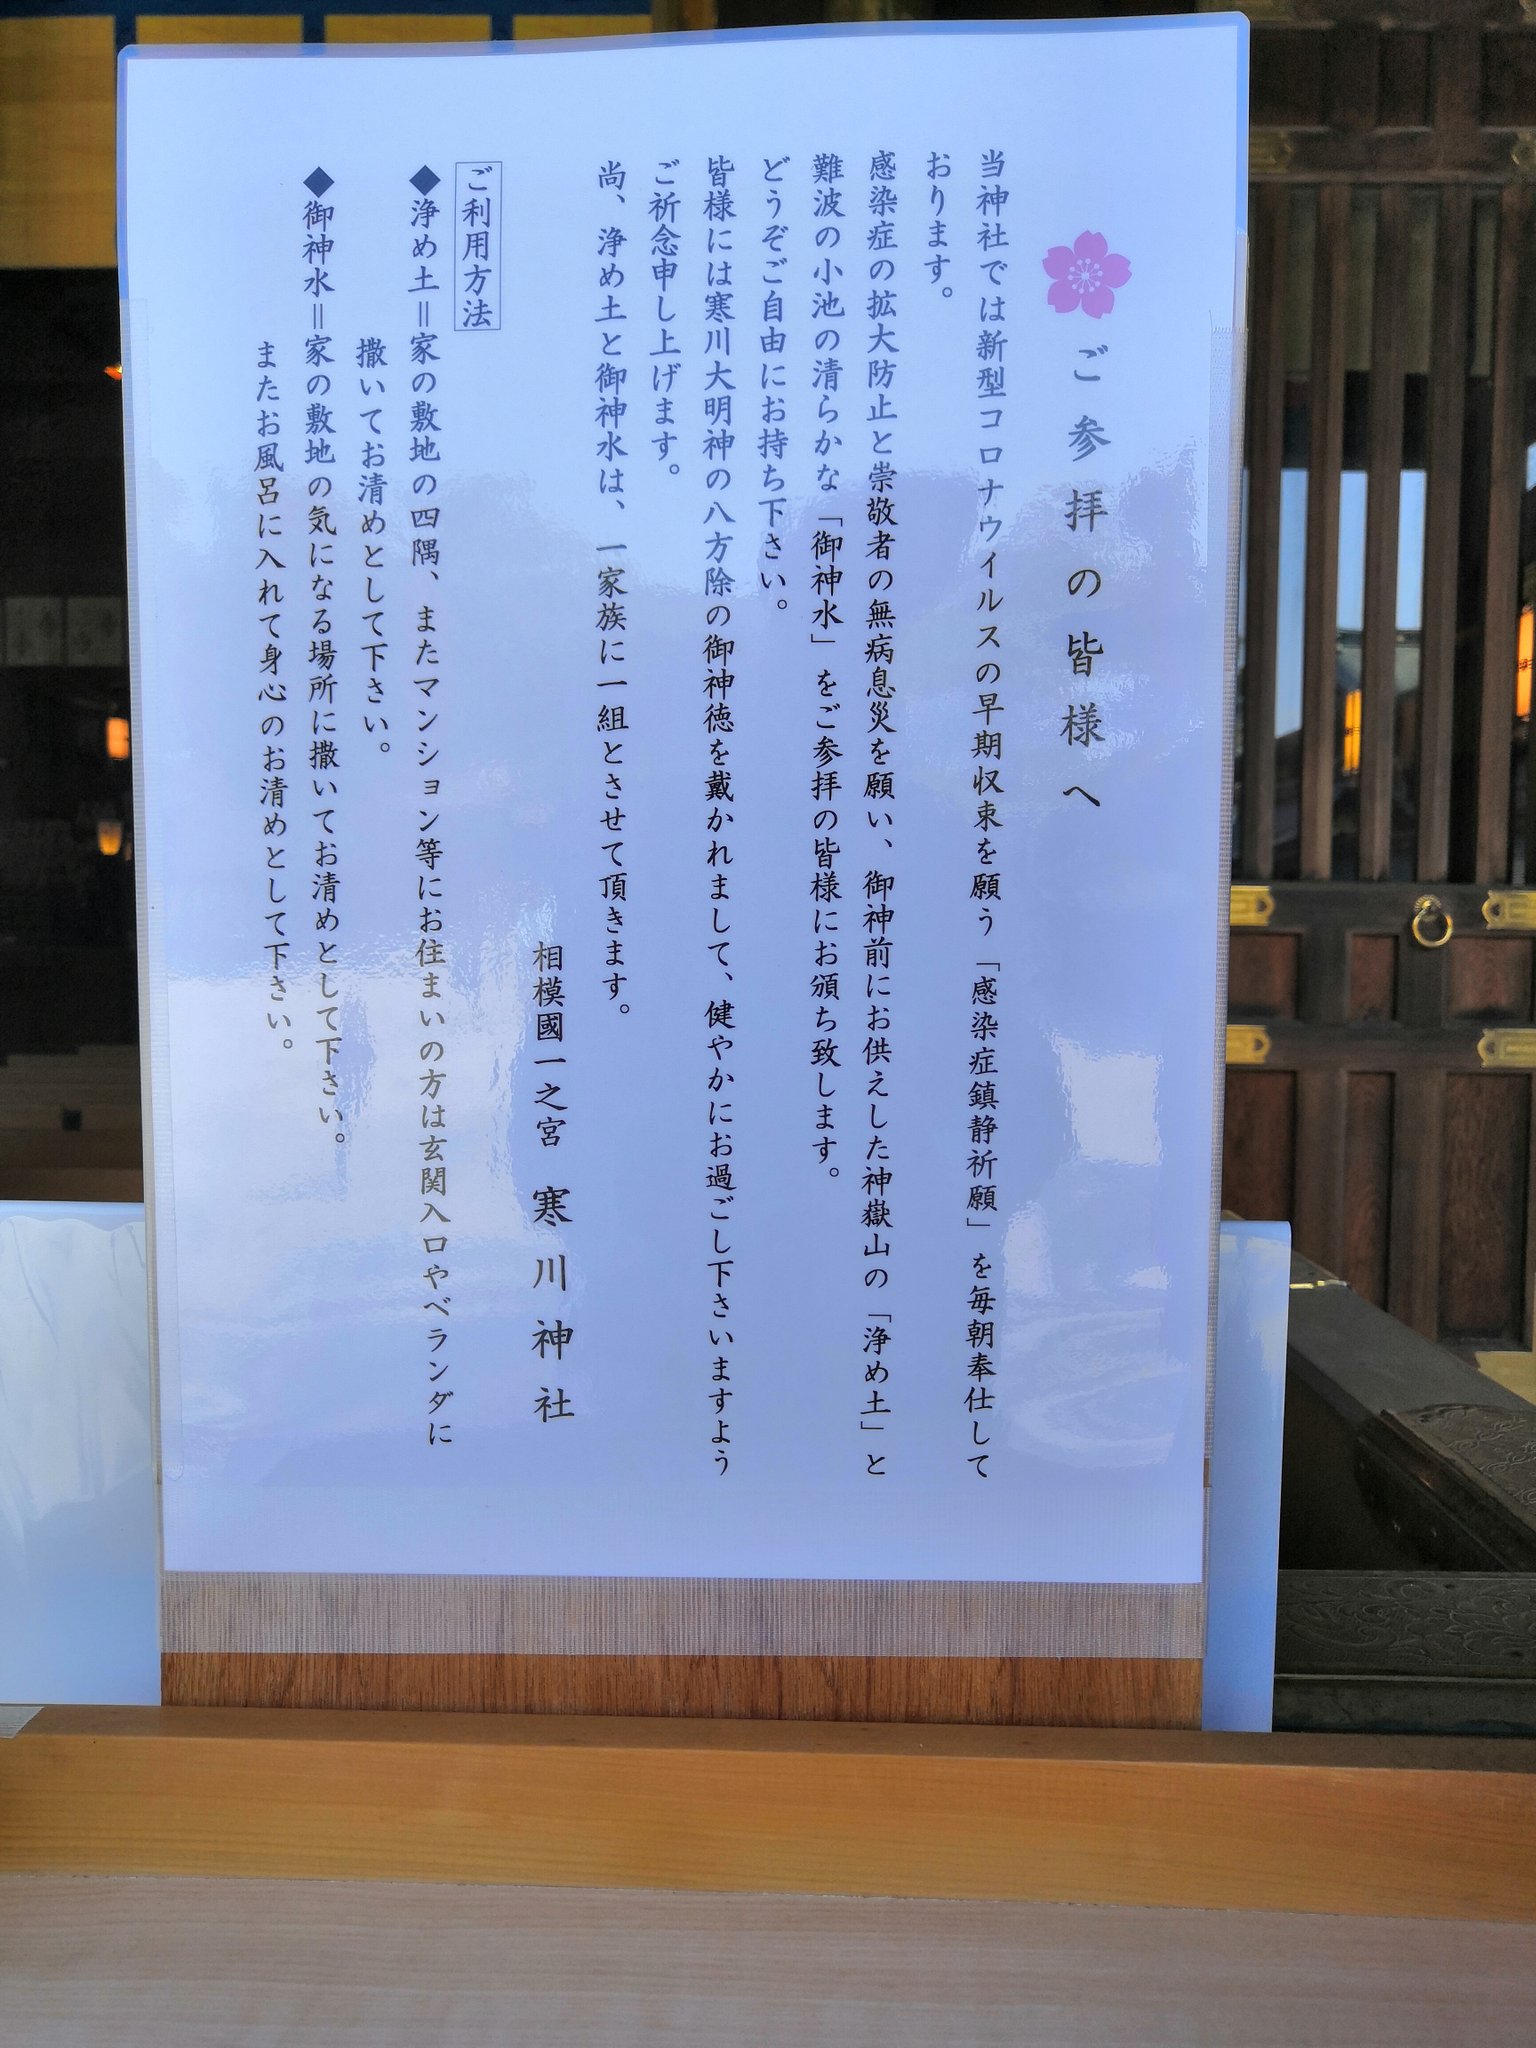 ご参拝の皆様へ
当神社では新型コロナウイルスの早期収束を願う「感染症鎮静祈願」を毎朝奉仕して
おります。
感染症の拡大防止と崇敬者の無病息災を願い、御神前にお供えした神嶽山の「浄め土」と
難波の小池の清らかな「御神水」をご参拝の皆様にお頒ち致します。
どうぞご自由にお持ち下さい。
皆様には寒川大明神の八方除の御神徳を戴かれまして、健やかにお過ごし下さいますよう
ご祈念申し上げます。
尚、浄め土と御神水は、一家族に一組とさせて頂きます。
相模國一之宮 寒川神社
ご利用方法
◆浄め土＝家の敷地の四隅、またマンション等にお住まいの方は玄関入口やベランダに
撒いてお清めとして下さい。
◆御神水＝家の敷地の気になる場所に撒いてお清めとして下さい。
またお風呂に入れて身心のお清めとして下さい。